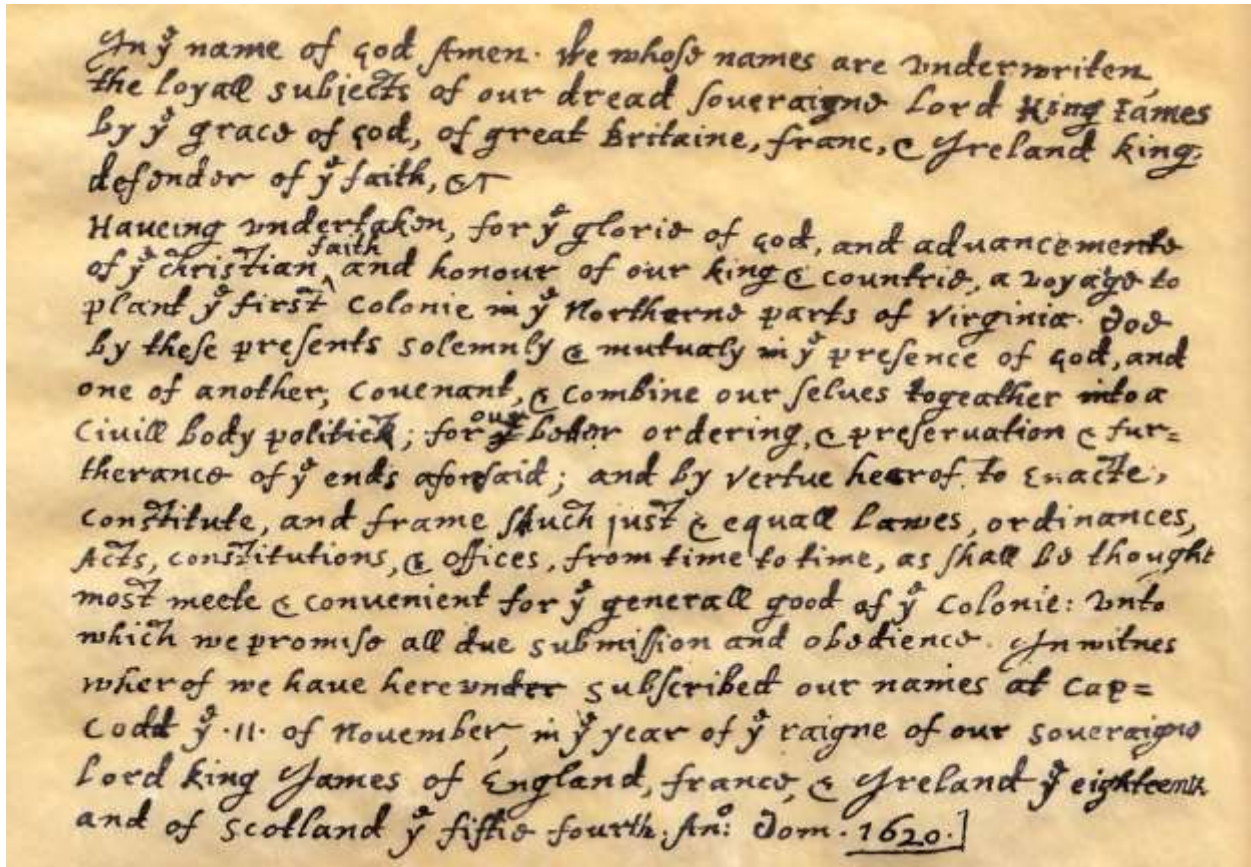 In yͤ name of god Amen. We whose names are vnderwriten,
the loyall subjects of our dread soueraigne Lord King Iames
by yͤ grace of god, of great Britaine, franc, & Ireland king,
defender of yͤ faith, &c
Haueing vndertaken, for yͤ glorie of god, and aduancemente
of yͤ christian ^faith and honour of our king & countrie, a voyage to
plant yͤ first colonie in yͤ Northerne parts of Virginia. Doe
by these presents solemnly & mutualy in yͤ presence of god, and
one of another, couenant, & combine our selues togeather into a
Ciuill body politick; for our beter ordering, & preseruation & fur=
therance of yͤ ends aforesaid; and by vertue hearof to Enacte,
constitute, and frame shuch just & equall Lawes, ordinances,
Acts, constitutions, & offices, from time to time, as shall be thought
most meete & conuenient for yͤ generall good of yͤ Colonie: vnto
which we promise all due submission and obedience. In witnes
wherof we haue herevnder subscribed our names at Cap=
Codd yͤ .11. of Nouember, in yͤ year of yͤ raigne of our soueraigne
Lord king James of England, france, & Ireland yͤ eighteenth
and of Scotland yͤ fiftie fourth. Anͦ: Dom. 1620.]